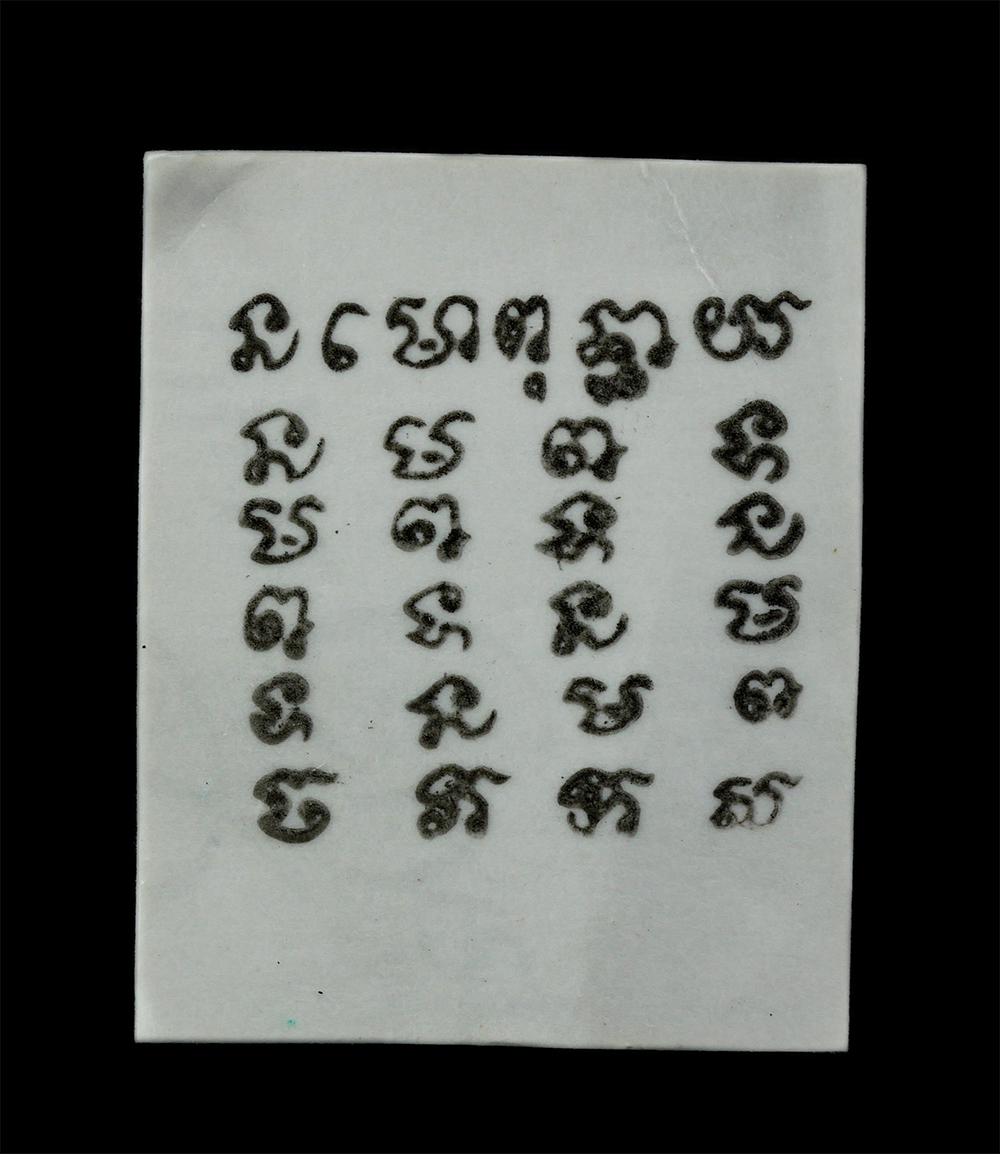 នមោពុទ្ធាយ
ន ម ព ទ
ម ព ទ ន
ព ទ ន ម
ទ ន ម ព
ច ភ ក ស